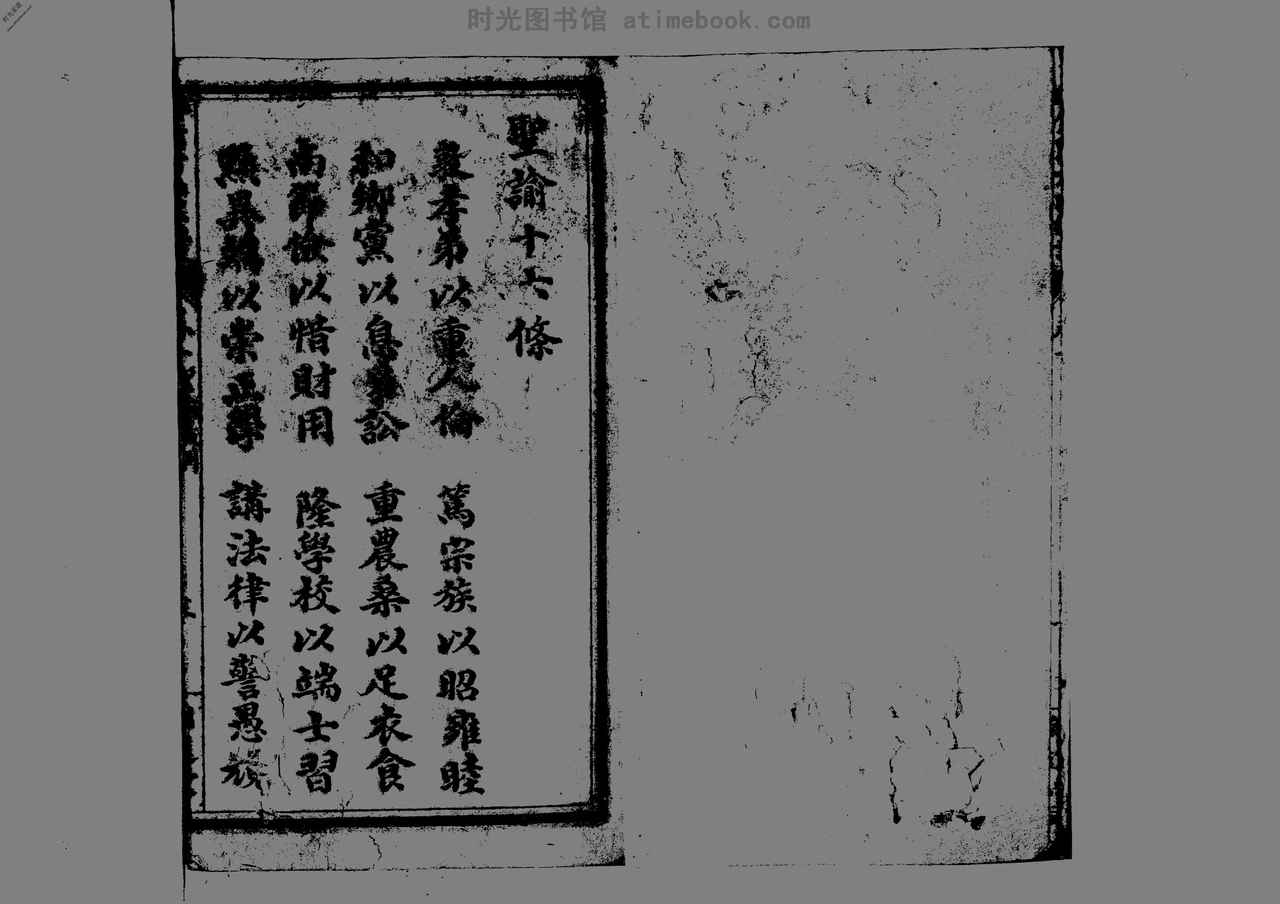 时光图书馆 atimebook.com
聖諭十六條
敦孝弟以重人倫 篤宗族以昭雍睦
和鄉黨以息爭訟 重農桑以足衣食
尚節儉以惜財用 隆學校以端士習
黜異端以崇正學 講法律以警愚頑